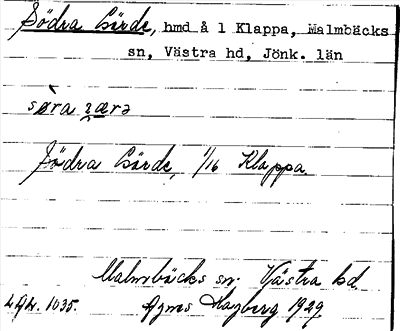 Södra Gärde, hmd å 1 Klappa, Malmbäcks
sn, Västra hd, Jönk. län
Södra Gärde, 1/16 Klappa.
Malmbäcks sn. Västra hd.
1035. Agnes Hagberg 1929